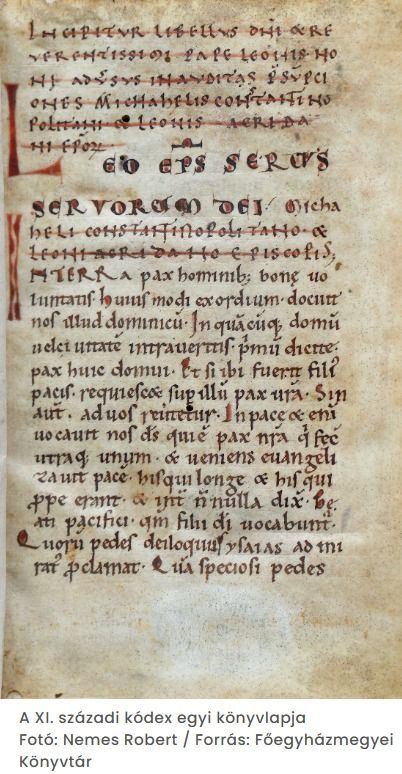 INCIPITUR LIBELLUS DNI & RE
VERENTISSIMI PAPE LEONIS NO
NI ADVSVS INAUDITAS PSVPCI
ONES MICHAHELIS CONSTANTINO
POLITANI & LEONIS ACRIDA
NI EPOR
LEO EPS SERVVS
SERVORVM DEI. Micha
HELI CONSTANTINOPOLITANO &
LEONI ACRIDANO EPISCOPIS;
INTERRA pax hominib; bonę uo
luntatis. huius modi exordium. docuit
nos illud dominicū. In quācūq; domū
uel ciuitatē intraueritis. p̄mū dicite.
pax huic domui. Et si ibi fuerit fili
pacis. requiescet sup illū pax ur̄a. Sin
aut. ad uos reuertetur. In pace & eni
uocauit nos ds̄ qui ē pax nr̄a q̄ fec
utraq; unum. & ueniens euangeli
zauit pacē. his qui longe & his qui
ꝓpe erant. &
ati pacifici. qm̄ filii di uocabunt.
Quorū pedes deiloquus ysaias admi
rat ꝓclamat. Quā speciosi pedes
A XI. századi kódex egyi könyvlapja
Fotó: Nemes Robert / Forrás: Főegyházmegyei
Könyvtár